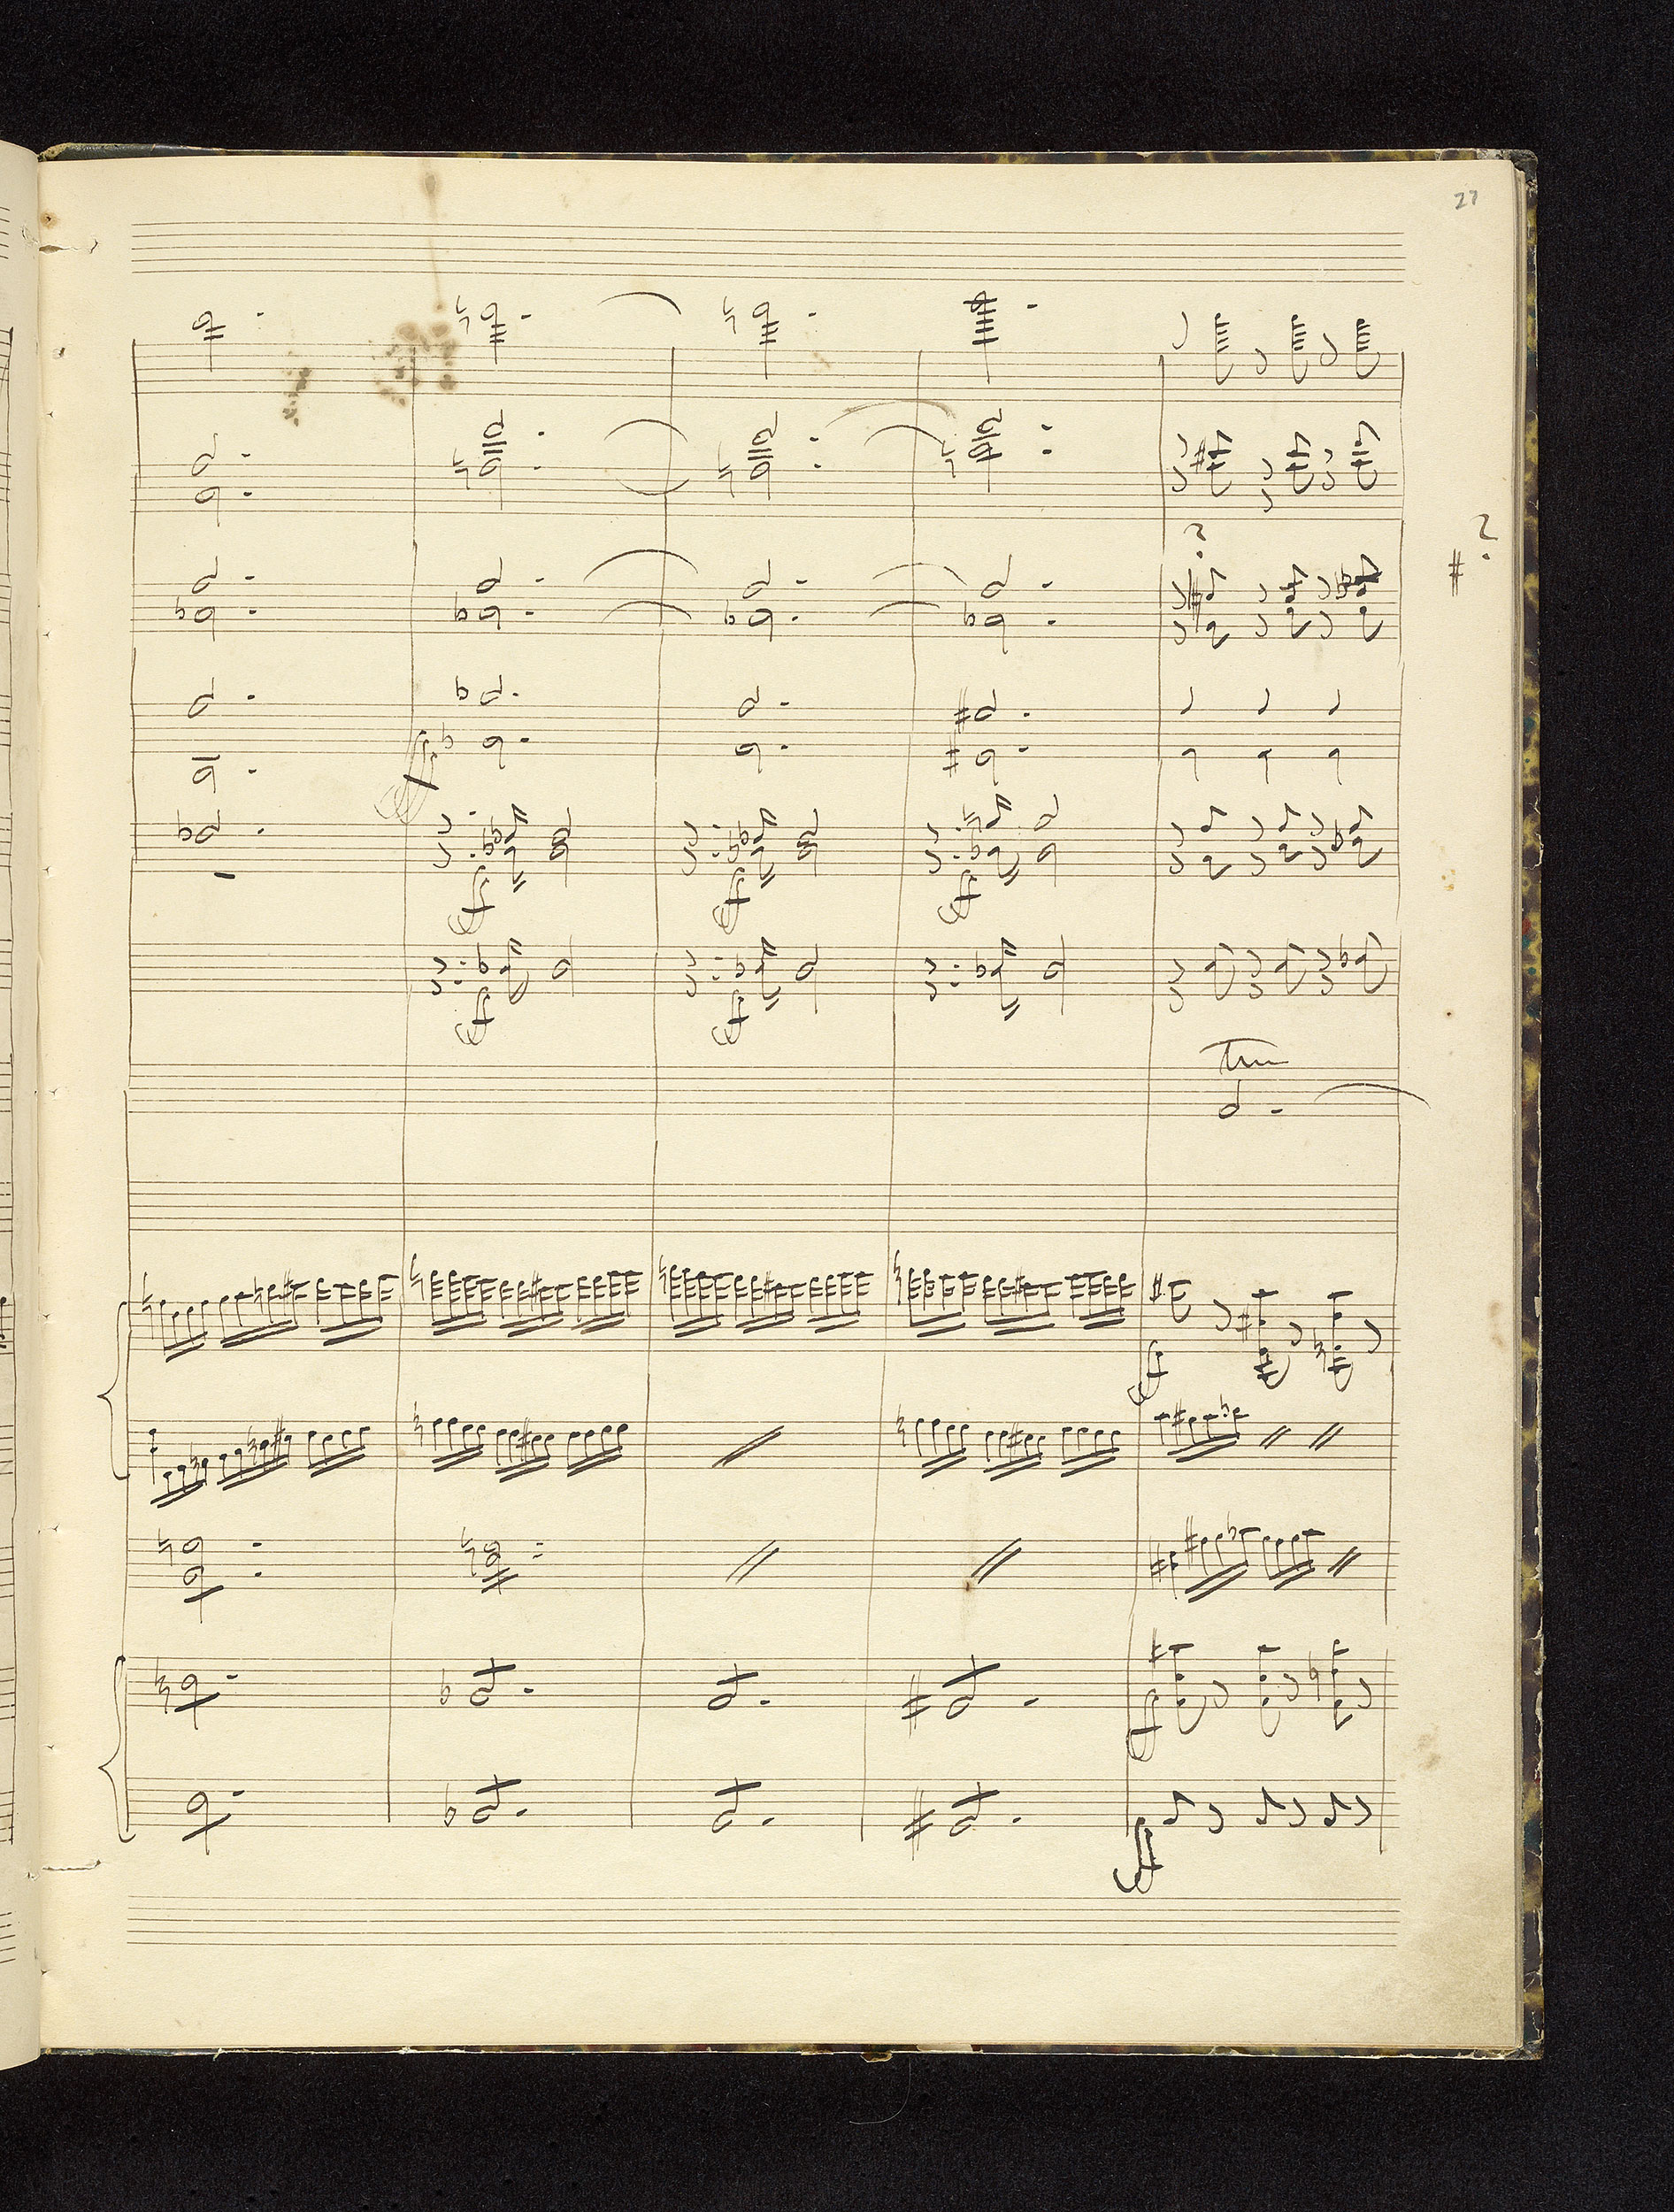 27
?
?
fff
ff
ff
ff
ff
ff
tr
ff
ff
ff